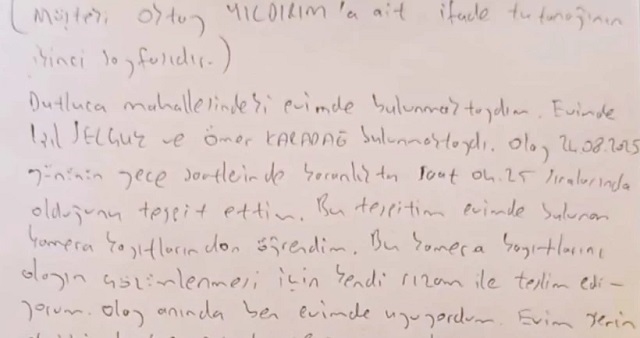 (Müşteki Oktay YILDIRIM'a ait ifade tutanağının
ikinci sayfasıdır.)
Dutluca mahallesindeki evimde bulunmaktaydım. Evimde
Işıl SELGUK ve Ömer KARADAĞ bulunmaktaydı. Olay 24.08.2025
gününün gece saatleinde karanlıkta saat 04.25 sıralarında
olduğunu tespit ettim. Bu tespitimi evimde bulunan
kamera kayıtlarından öğrendim. Bu kamera kayıtlarını
olayın çözümlenmesi için kendi rızam ile teslim edi-
yorum. Olay anında ben evimde uyuyordum. Evim yerin